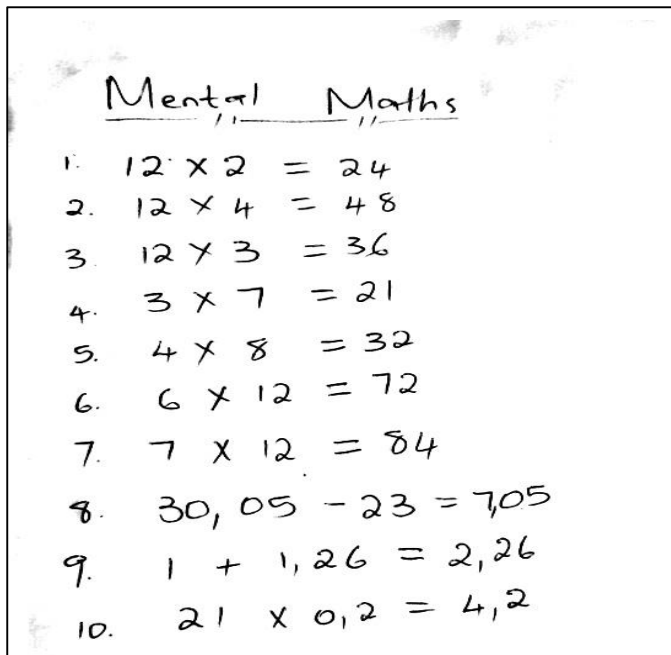 Mental Maths
1. 12 × 2 = 24
2. 12 × 4 = 48
3. 12 × 3 = 36
4. 3 × 7 = 21
5. 4 × 8 = 32
6. 6 × 12 = 72
7. 7 × 12 = 84
8. 30,05 - 23 = 7,05
9. 1 + 1,26 = 2,26
10. 21 × 0,2 = 4,2